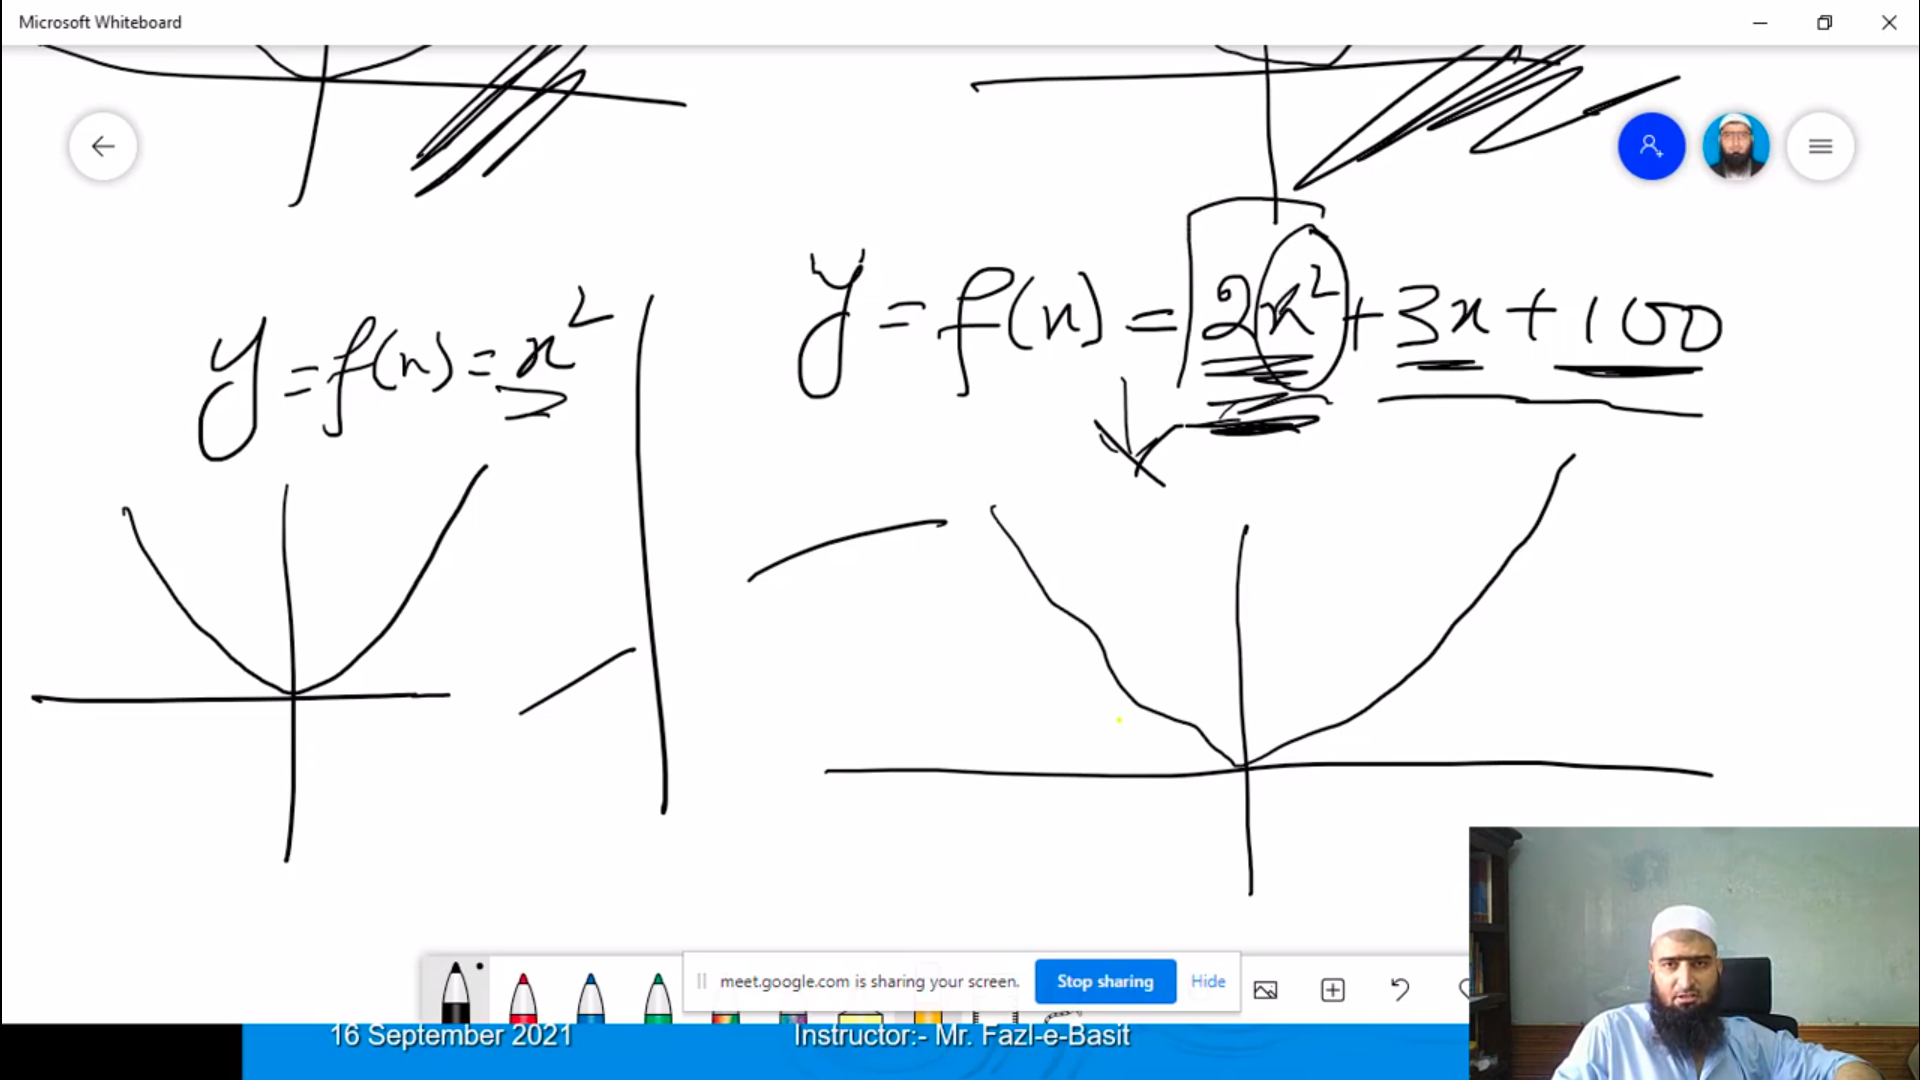 Microsoft Whiteboard
y = f(x) = x²
y = f(x) = 2x² + 3x + 100
meet.google.com is sharing your screen.
Stop sharing
Hide
16 September 2021
Instructor:- Mr. Fazl-e-Basit